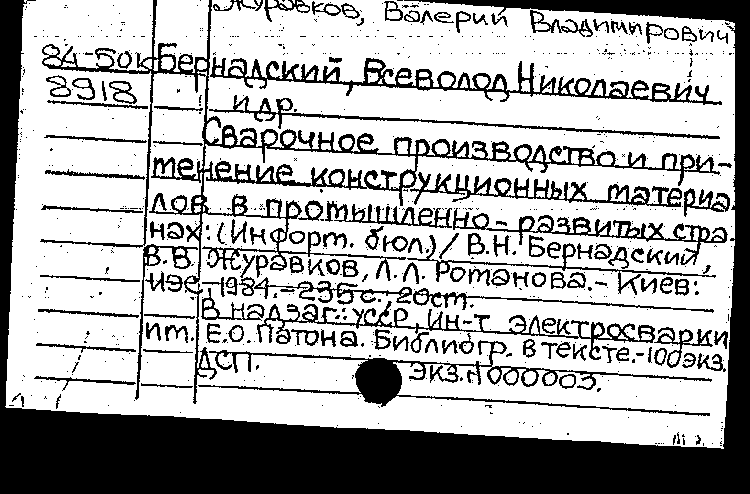 Журавков, Валерий Владимирович
84-5ok Бернадский, Всеволод Николаевич
8918 и др.
Сварочное производство и при-
менение конструкционных материа-
лов в промышленно-развитых стра-
нах: (Информ. бюл.) / В.Н. Бернадский,
В.В. Журавков, Л.Л. Романова. - Киев:
ИЭС, 1984. - 235 с.; 20 см.
В надзаг.: УССР, Ин-т электросварки
им. Е.О. Патона. Библиогр. в тексте. - 100 экз.
ДСП. Экз. N 000003.